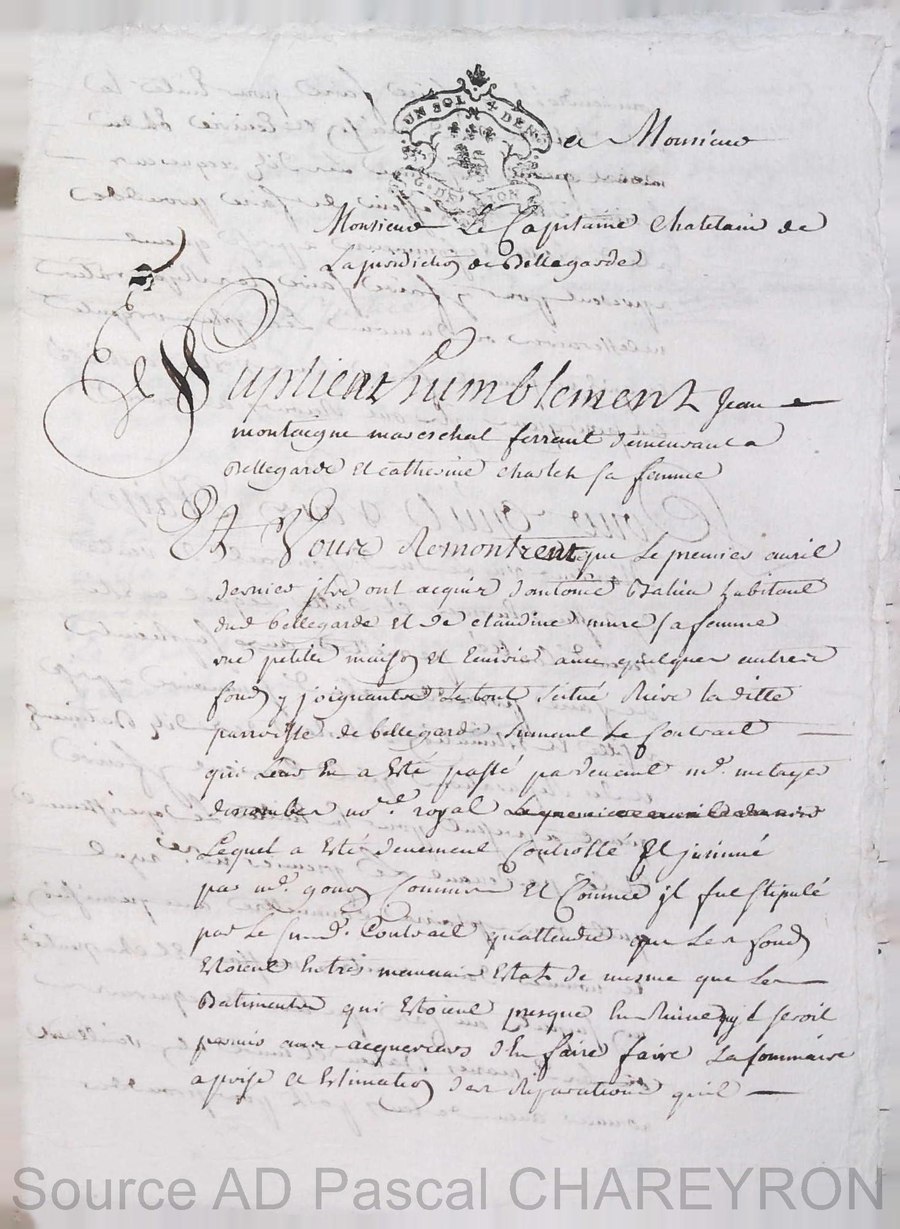 UN SOL 4 DEN.
G. DE LYON
A Monsieur
Monsieur Le Capitaine Chatelain de
La jurisdiction de Bellegarde
Suplient humblement Jean
montaigne mareschal ferrant demeurant a
Bellegarde et catherine sa femme
Et Vous Remontrent que Le premier avril
dernier ilz ont acquis d'antoine habitant
dud bellegarde et de claudine mure sa femme
une petite maison et avec quelques autres
fondz y joignants Le tout scitué Riere la ditte
parroisse de bellegarde suivant Le Contrait
qui Leur En a Esté passé pardevent me. metayer
no.re royal
Lequel a esté deuement Controllé Et jnsinué
par me. gonon Commis Et Comme jl fut stipulé
par Le susd. Contrait quattendu que Les fondz
Estoient En tres mauvais Estat de mesme que Les
Batiments qui Estoient presque En Ruine quil seroit
permis aux acquereurs d'En faire faire La sommaire
aprise et Estimation des Reparations quil
Source AD Pascal CHAREYRON